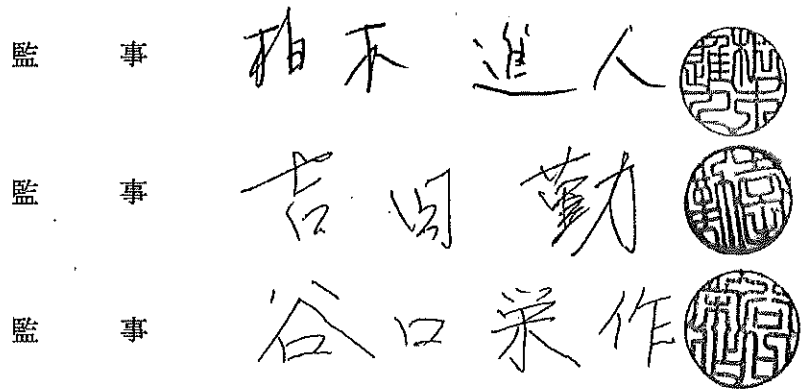 監事 柏木 進人
監事 吉岡 勤
監事 谷口 栄作